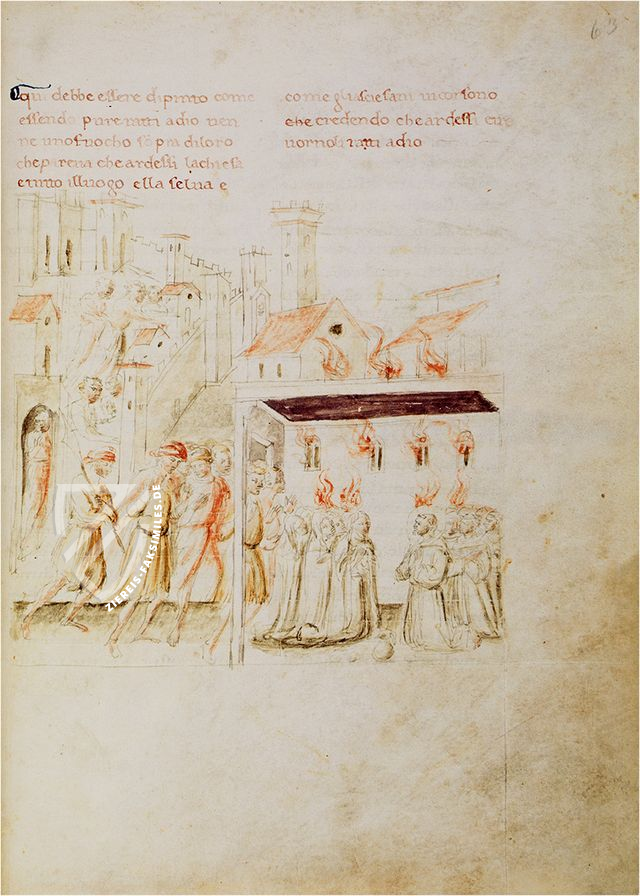 63
Qui debbe essere dipinto come
essendo pure ratti a dio ven
ne uno fuocho sopra di loro
che pareva che ardessi la chiesa
e tutto il luogo ella selva e
come gli ascesani vi corsono
che credendo che ardessi
ratti a dio
ZIEREIS-FAKSIMILES.DE